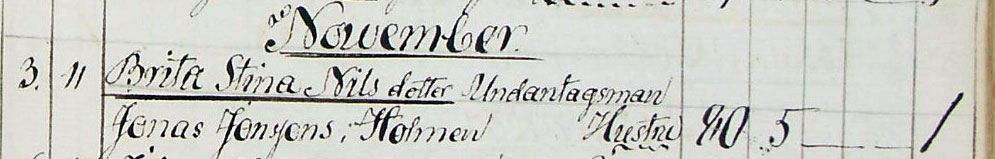 November
3. 11 Brita Stina Nils dotter Undantagsman
Jonas Jonsons, Holmen Hustru 80 5 1